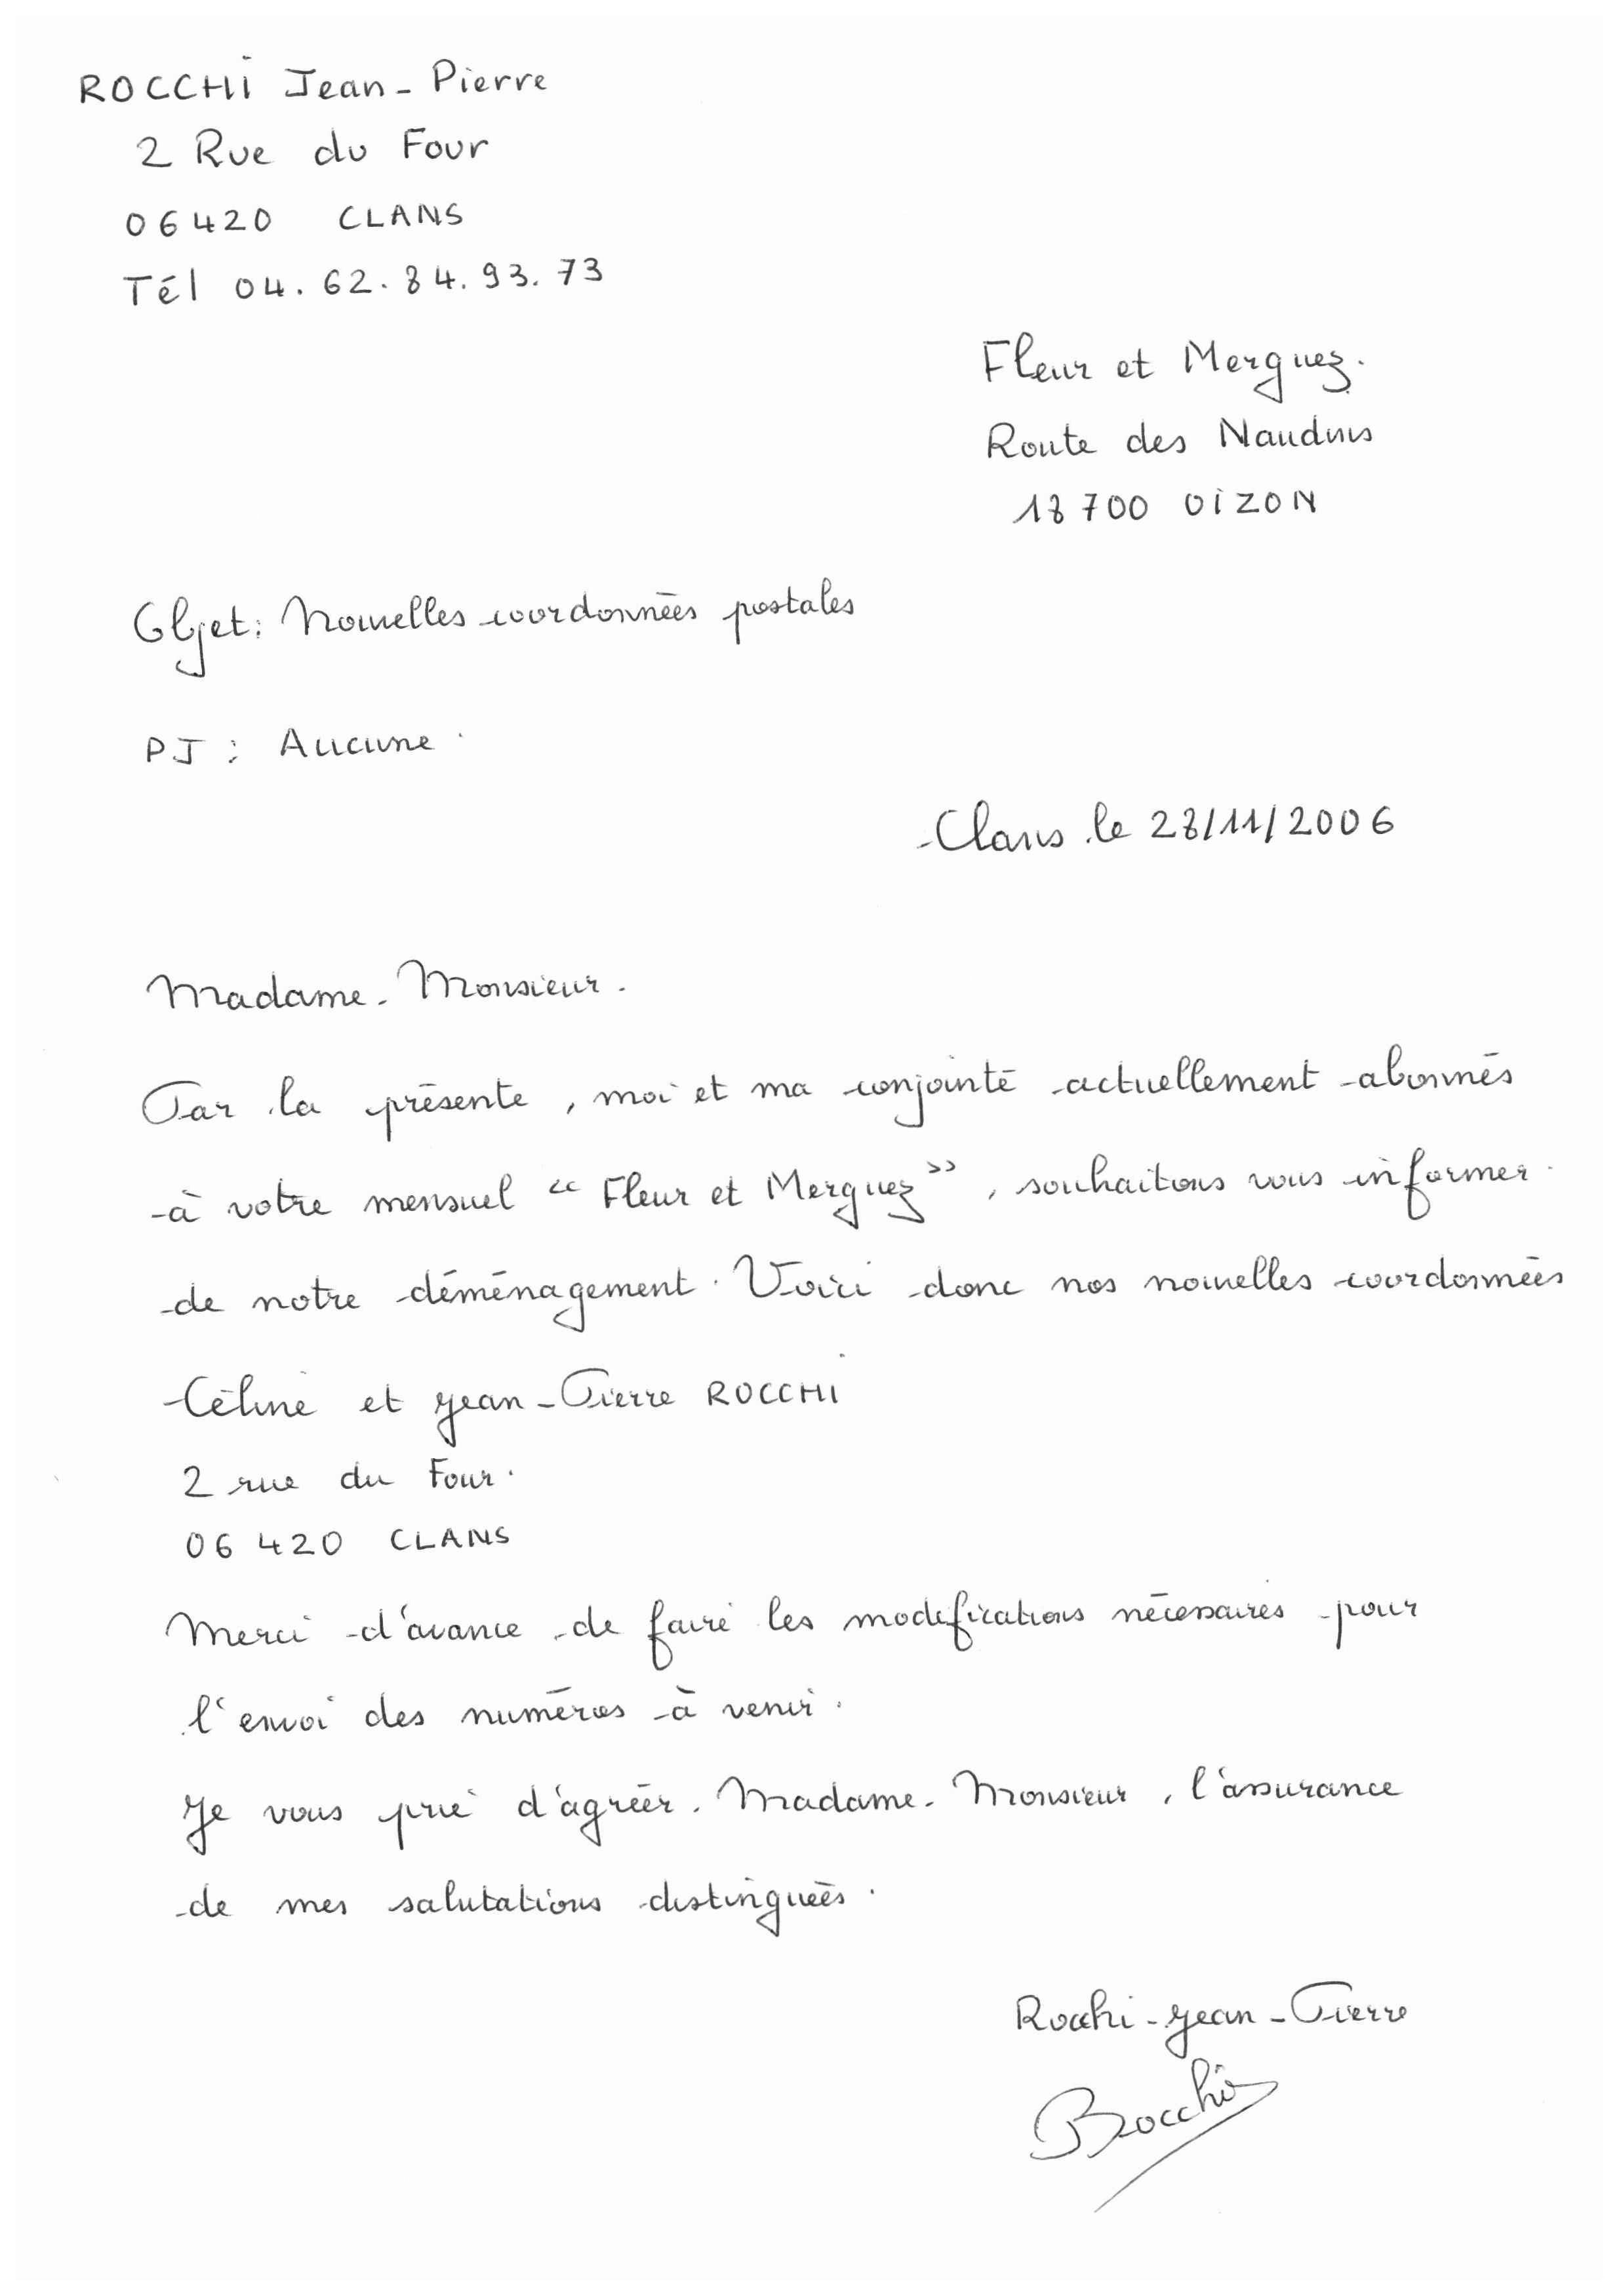 ROCCHI Jean-Pierre
2 Rue du Four
06420 CLANS
Tél 04.62.84.93.73
Fleur et Merguez.
Route des Naudins
18700 OIZON
Objet: Nouvelles coordonnées postales
PJ : Aucune.
Clans le 28/11/2006
Madame. Monsieur.
Par la présente, moi et ma conjointe actuellement abonnés
à votre mensuel "Fleur et Merguez", souhaitons vous informer
de notre déménagement. Voici donc nos nouvelles coordonnées
Céline et Jean-Pierre ROCCHI
2 rue du Four.
06420 CLANS
Merci d'avance de faire les modifications nécessaires pour
l'envoi des numéros à venir.
Je vous prie d'agréer. Madame. Monsieur, l'assurance
de mes salutations distinguées.
Rocchi-Jean-Pierre
Rocchi